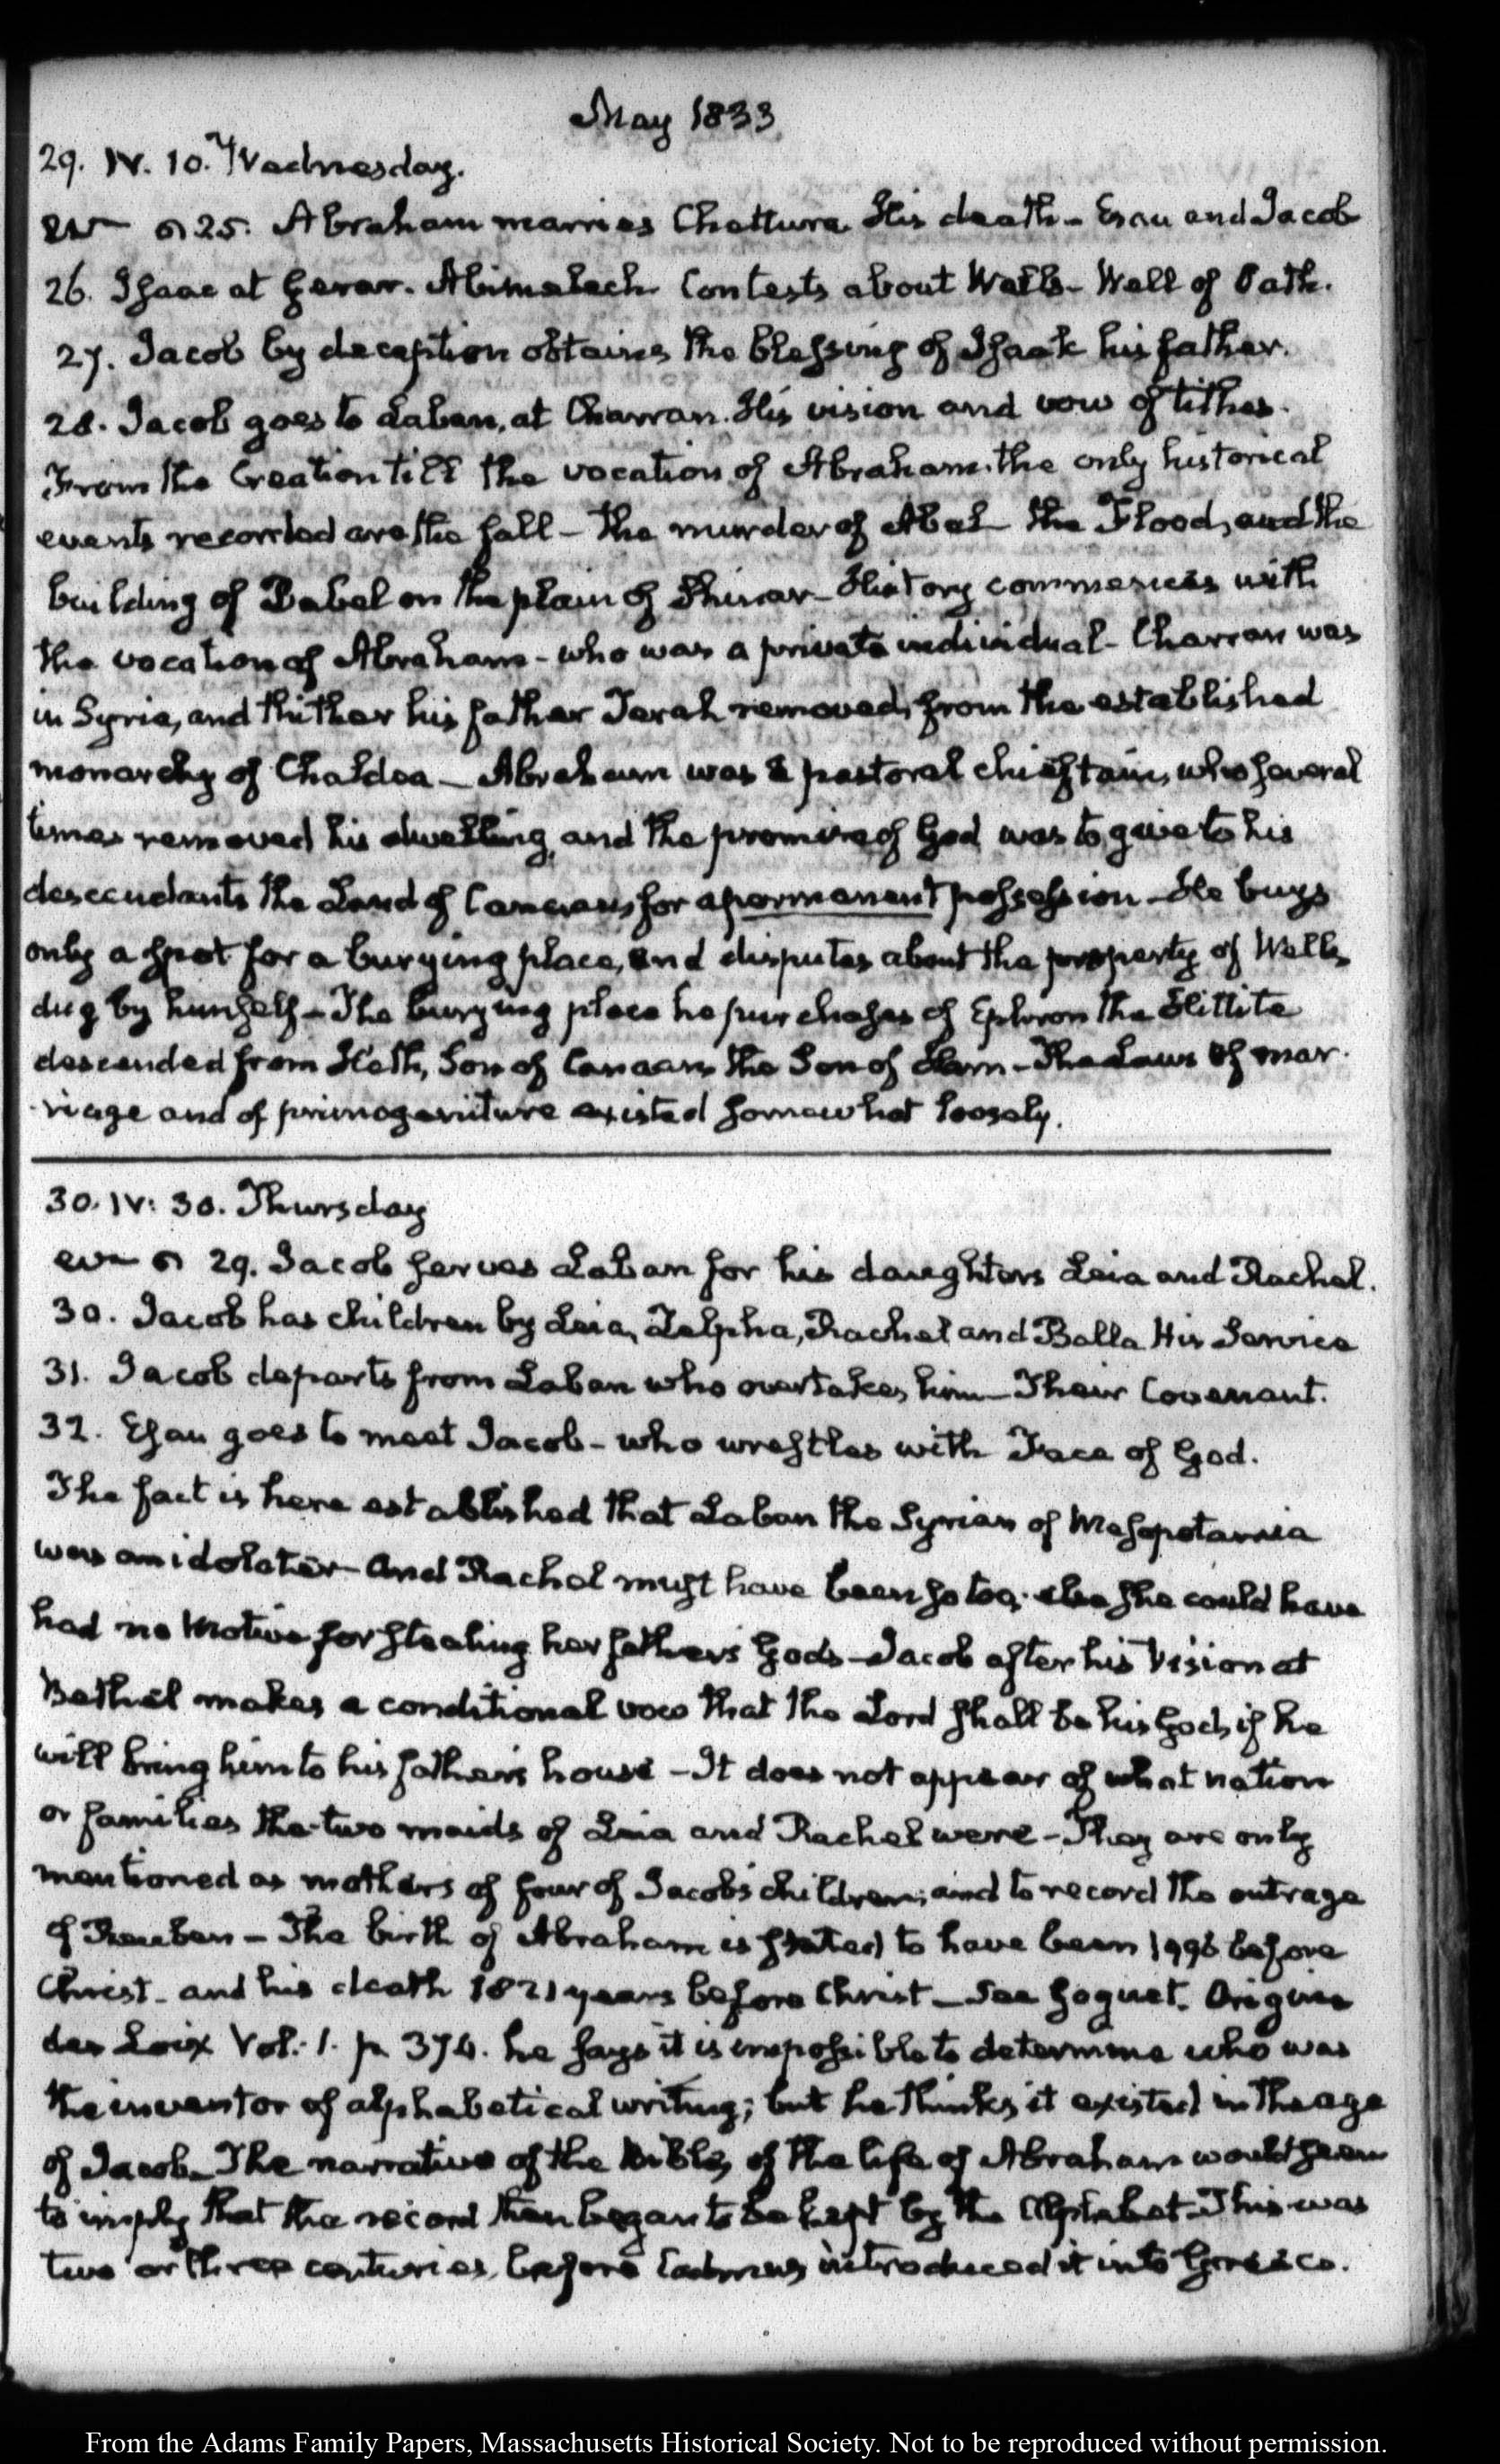 May 1833
29. IV. 10. Wednesday.
25. Abraham marries Chettura. His death – Esau and Jacob
26. Isaac at Gerar. Abimelech. Contests about Wells – Well of Oath.
27. Jacob by deception obtains the blessing of Isaak his father.
28. Jacob goes to Laban, at Charran. His vision and vow of tithes.
From the Creation till the vocation of Abraham the only historical
events recorded are the fall – the murder of Abel the Flood, and the
building of Babel on the plain of Shinar – History commences with
the vocation of Abraham – who was a private individual – Charran was
in Syria, and thither his father Terah removed, from the established
monarchy of Chaldea – Abraham was a pastoral chieftain, who several
times removed his dwelling, and the promise of God was to give to his
descendants the Land of Canaan, for a permanent possession – He buys
only a spot for a burying place, and disputes about the property of Wells
dug by himself – The burying place he purchases of Ephron the Hittite
descended from Heth, Son of Canaan the Son of Ham – The Laws of mar-
riage and of primogeniture existed somewhat loosely.
30. IV: 30. Thursday
29. Jacob serves Laban for his daughters Leia and Rachel.
30. Jacob has children by Leia, Zelpha, Rachel and Balla His Service
31. Jacob departs from Laban who overtakes him – Their Covenant.
32. Esau goes to meet Jacob – who wrestles with Face of God.
The fact is here established that Laban the Syrian of Mesopotamia
was an idolater – And Rachel must have been so too, else she could have
had no Motive for stealing her father's Gods – Jacob after his Vision at
Bethel makes a conditional vow that the Lord shall be his God, if he
will bring him to his father's house – It does not appear of what nation
or families the two maids of Leia and Rachel were – They are only
mentioned as mothers of four of Jacob's children; and to record the outrage
of Reuben – The birth of Abraham is stated to have been 1996 before
Christ – and his death 1821 years before Christ – See Goguet. Origine
des Loix Vol: 1. p. 374. he says it is impossible to determine who was
the inventor of alphabetical writing; but he thinks it existed in the age
of Jacob – The narrative of the Bible, of the life of Abraham would seem
to imply that the record then began to be kept by the Alphabet – This was
two or three centuries, before Cadmus introduced it into Greece.
From the Adams Family Papers, Massachusetts Historical Society. Not to be reproduced without permission.